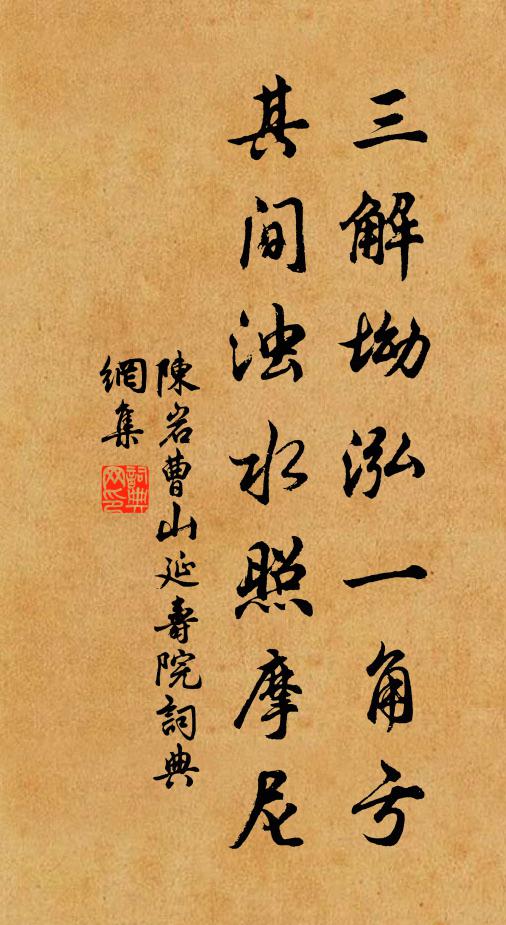 三解坳泓一角亏
其间浊水照摩尼
陳岩曹山延壽院詞典
網集
詞典网印